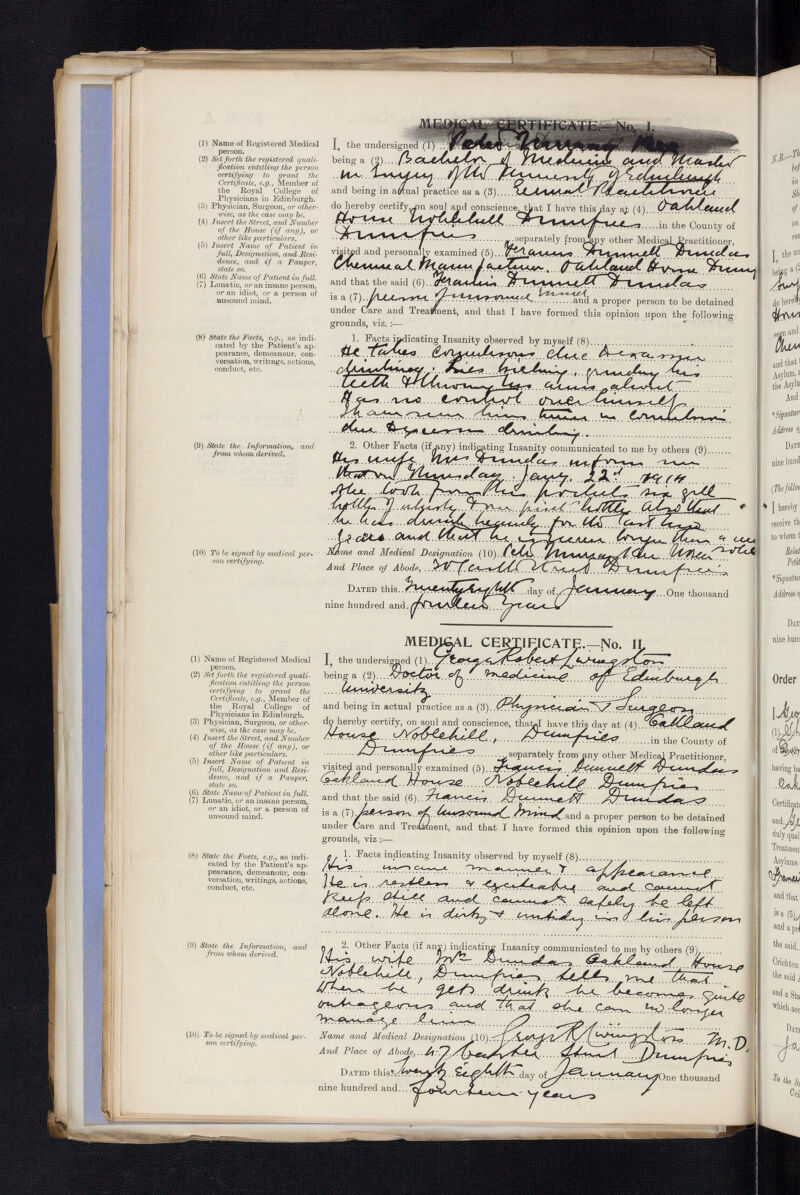 MEDICAL CERTIFICATE.—No. I.
(1) Name of Registered Medical person.
(2) Set forth the registered qualification entitling the person certifying to grant the Certificate, e.g., Member of the Royal College of Physicians in Edinburgh.
(3) Physician, Surgeon, or otherwise, as the case may be.
(4) Insert the Street, and Number of the House (if any), or other like particulars.
(5) Insert Name of Patient in full, Designation, and Residence, and if a Pauper, state so.
(6) State Name of Patient in full.
(7) Lunatic, or an insane person, or an idiot, or a person of unsound mind.
I, the undersigned (1) Peter Murray Kerr
being a (2) Bachelor of Medicine and Master
in Surgery of the University of Edinburgh
and being in actual practice as a (3) General Practitioner
do hereby certify, on soul and conscience, that I have this day at (4) Oakland
House Noblehill Dumfries in the County of
Dumfries separately from any other Medical Practitioner,
visited and personally examined (5) Francis Dunnett Dundas
Chemical Manufacturer, Oakland House
and that the said (6) Francis Dunnett Dundas
is a (7) person of unsound mind and a proper person to be detained
under Care and Treatment, and that I have formed this opinion upon the following
grounds, viz.:—
(8) State the Facts, e.g., as indicated by the Patient's appearance, demeanour, conversation, writings, actions, conduct, etc.
1. Facts indicating Insanity observed by myself (8)
He takes Convulsions due to excessive
drinking. Lies grinding his
teeth & throwing his arms about
Has no control over himself
I have seen him in convulsions
due to excessive drinking.
(9) State the Information, and from whom derived.
2. Other Facts (if any) indicating Insanity communicated to me by others (9)
His wife Mrs Dundas informs me
that on Thursday, Jany. 22d 1914
she took from his pockets six gill
bottles of whisky & one bottle also that
he has drunk heavily for the last
years and that he is
(10) To be signed by medical person certifying.
Name and Medical Designation (10) Peter Murray Kerr
And Place of Abode, Castle Street Dumfries
DATED this Twenty eighth day of January One thousand
nine hundred and fourteen years
MEDICAL CERTIFICATE.—No. II.
(1) Name of Registered Medical person.
(2) Set forth the registered qualification entitling the person certifying to grant the Certificate, e.g., Member of the Royal College of Physicians in Edinburgh.
(3) Physician, Surgeon, or otherwise, as the case may be.
(4) Insert the Street, and Number of the House (if any), or other like particulars.
(5) Insert Name of Patient in full, Designation and Residence, and if a Pauper, state so.
(6) State Name of Patient in full.
(7) Lunatic, or an insane person, or an idiot, or a person of unsound mind.
I, the undersigned (1) George Robert Livingston
being a (2) Doctor of Medicine of Edinburgh
University
and being in actual practice as a (3) Physician & Surgeon
do hereby certify, on soul and conscience, that I have this day at (4) Oakland
House Noblehill, Dumfries in the County of
Dumfries separately from any other Medical Practitioner,
visited and personally examined (5) Francis Dunnett Dundas
Oakland House Noblehill Dumfries
and that the said (6) Francis Dunnett Dundas
is a (7) person of unsound mind and a proper person to be detained
under Care and Treatment, and that I have formed this opinion upon the following
grounds, viz:—
(8) State the Facts, e.g., as indicated by the Patient's appearance, demeanour, conversation, writings, actions, conduct, etc.
1. Facts indicating Insanity observed by myself (8)
His insane manner & appearance
He is restless & exciteable and cannot
keep still and cannot safely be left
alone. He is dirty & untidy in his person
(9) State the Information, and from whom derived.
2. Other Facts (if any) indicating Insanity communicated to me by others (9)
His wife Mrs Dundas Oakland House
Noblehill, Dumfries tells me that
when he gets drunk he becomes quite
outrageous and that she can no longer
manage him
(10) To be signed by medical person certifying.
Name and Medical Designation (10) George R Livingston M.D.
And Place of Abode, 47 Castle Street Dumfries
DATED this Twenty Eighth day of January One thousand
nine hundred and fourteen years